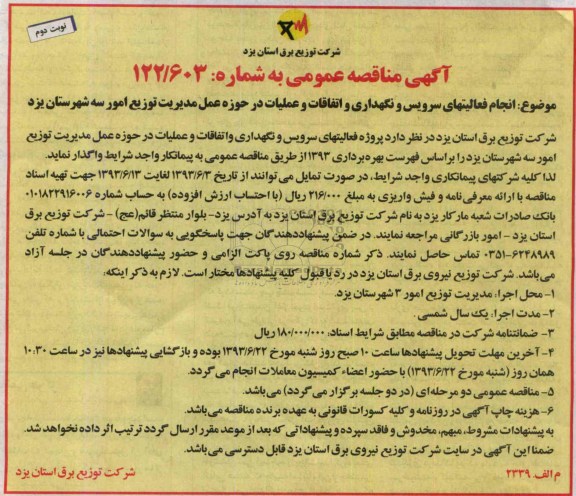 نوبت دوم
شرکت توزیع برق استان یزد
آگهی مناقصه عمومی به شماره: ۱۲۲/۶۰۳
موضوع: انجام فعالیتهای سرویس و نگهداری و اتفاقات و عملیات در حوزه عمل مدیریت توزیع امور سه شهرستان یزد
شرکت توزیع برق استان یزد در نظر دارد پروژه فعالیتهای سرویس و نگهداری و اتفاقات و عملیات در حوزه عمل مدیریت توزیع
امور سه شهرستان یزد را بر اساس فهرست بهره برداری ۱۳۹۳ از طریق مناقصه عمومی به پیمانکار واجد شرایط واگذار نماید.
لذا کلیه شرکتهای پیمانکاری واجد شرایط، در صورت تمایل می توانند از تاریخ ۱۳۹۳/۶/۳ لغایت ۱۳۹۳/۶/۱۳ جهت تهیه اسناد
مناقصه با ارائه معرفی نامه و فیش واریزی به مبلغ ۲۱۶/۰۰۰ ریال (با احتساب ارزش افزوده) به حساب شماره ۰۱۰۱۸۳۲۹۱۶۰۰۶
بانک صادرات شعبه مارکار یزد به نام شرکت توزیع برق استان یزد به آدرس یزد- بلوار منتظر قائم(عج) - شرکت توزیع برق
استان یزد - امور بازرگانی مراجعه نمایند. در ضمن پیشنهاددهندگان جهت پاسخگویی به سوالات احتمالی با شماره تلفن
۰۳۵۱-۶۲۴۸۹۸۹ تماس حاصل نمایند. ذکر شماره مناقصه روی پاکت الزامی و حضور پیشنهاددهندگان در جلسه آزاد
می باشد. شرکت توزیع نیروی برق استان یزد در رد یا قبول کلیه پیشنهادها مختار است. لازم به ذکر اینکه:
۱- محل اجرا: مدیریت توزیع امور ۳ شهرستان یزد.
۲- مدت اجرا: یک سال شمسی.
۳- ضمانتنامه شرکت در مناقصه مطابق شرایط اسناد: ۱۸۰/۰۰۰/۰۰۰ ریال
۴- آخرین مهلت تحویل پیشنهادها ساعت ۱۰ صبح روز شنبه مورخ ۱۳۹۳/۶/۲۲ بوده و بازگشایی پیشنهادها نیز در ساعت ۱۰:۳۰
همان روز (شنبه مورخ ۱۳۹۳/۶/۲۲) با حضور اعضاء کمیسیون معاملات انجام می گردد.
۵- مناقصه عمومی دو مرحله ای (در دو جلسه برگزار می گردد) می باشد.
۶- هزینه چاپ آگهی در روزنامه و کلیه کسورات قانونی به عهده برنده مناقصه می باشد.
به پیشنهادات مشروط، مبهم، مخدوش و فاقد سپرده و پیشنهاداتی که بعد از موعد مقرر ارسال گردد ترتیب اثر داده نخواهد شد.
ضمنا این آگهی در سایت شرکت توزیع نیروی برق استان یزد قابل دسترسی می باشد.
م الف. ۲۳۳۹
شرکت توزیع برق استان یزد